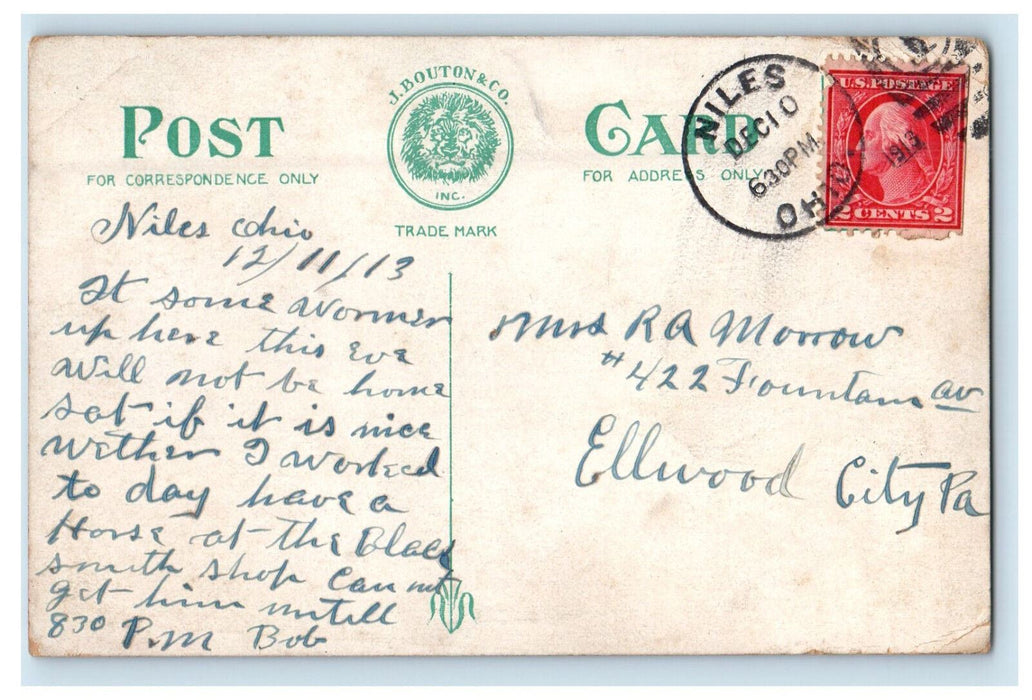 POST CARD
J. BOUTON & CO.
INC.
TRADE MARK
FOR CORRESPONDENCE ONLY
FOR ADDRESS ONLY
NILES
DEC 10
630 PM
OHIO
1913
U.S. POSTAGE
2 CENTS 2
Niles Ohio
12/11/13
It some Wormer
up here this eve
Will not be home
sat if it is nice
Wether I worked
to day have a
Horse at the Black
smith shop Can not
get him untill
830 P.M Bob
Mrs RA Morrow
#422 Fountain av
Ellwood City Pa